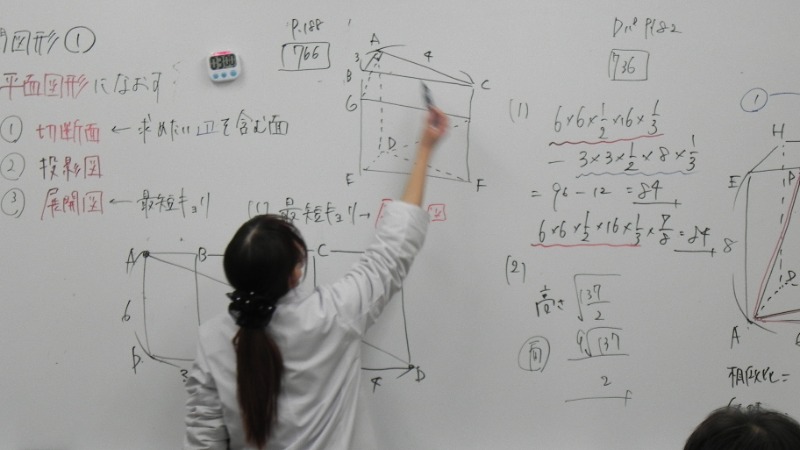 図形①
平面図形になおす
① 切断面 ← 求めたい皿を含む面
② 投影図
③ 展開図 ← 最短キョリ
03:00
P.188
766
A
3
4
B
C
G
D
E
F
(1) 最短キョリ→
A
B
C
6
D
3
4
D
P182
736
(1)
6×6×1/2×16×1/3
－3×3×1/2×8×1/3
=96－12=84
6×6×1/2×16×1/3×7/8=84
(2)
高さ √137/2
面 9√137/2
①
H
E
P
8
A
相似比=